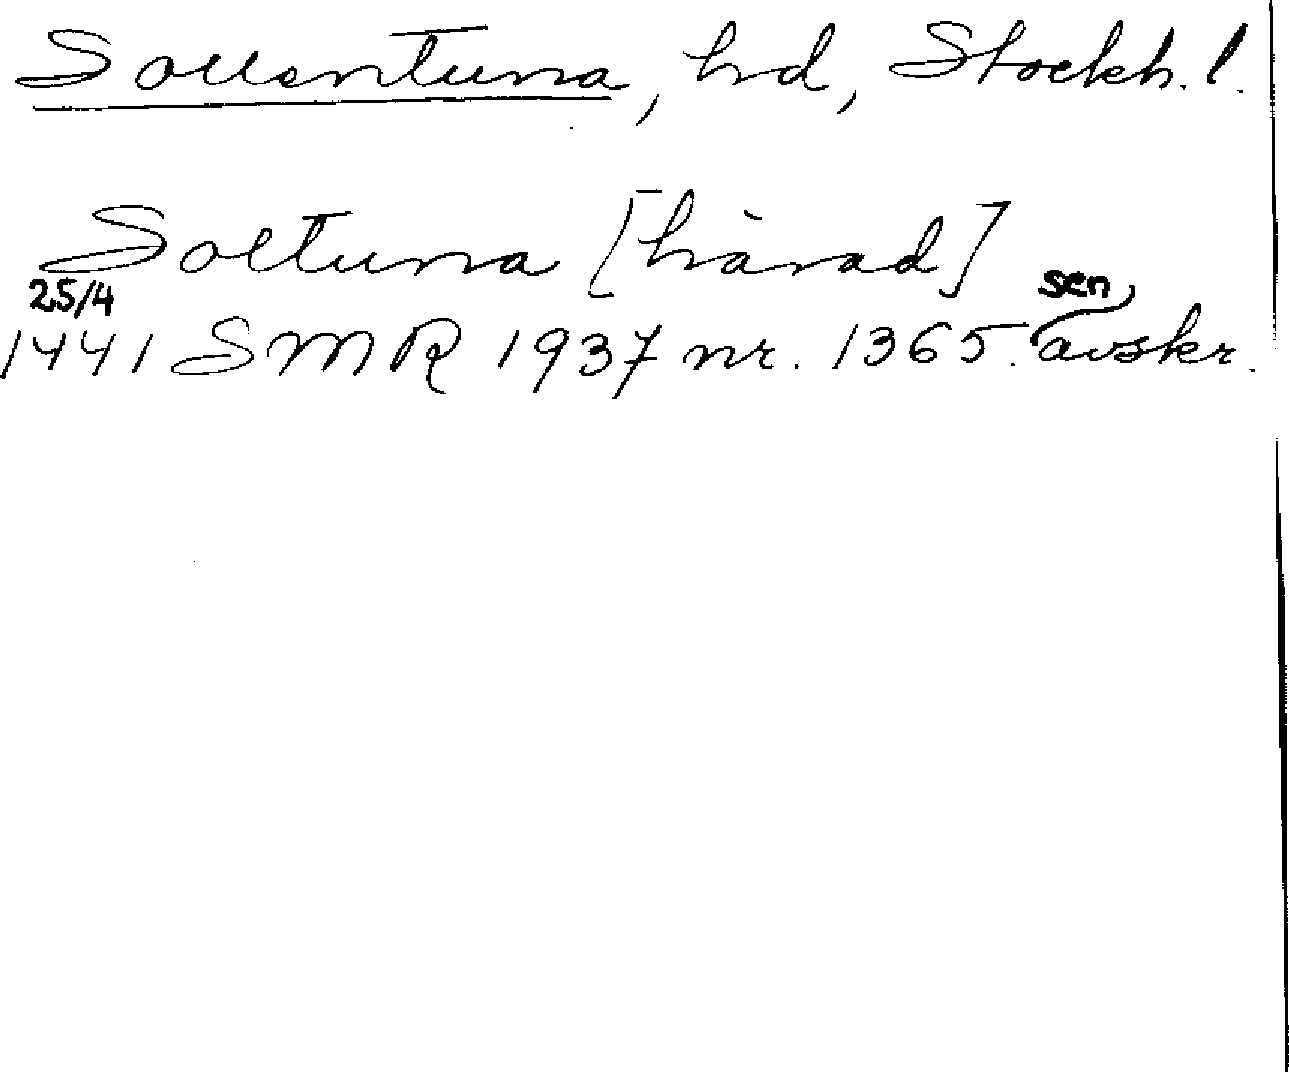 Sollentuna, hd, Stockh. l.
Soltuna [härad]
25/4
1441 SMR 1937 nr. 1365. sen avskr.